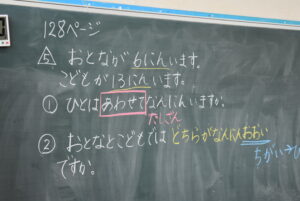 128ページ
⑤ おとなが 6にんいます。
こどもが 13にんいます。
① ひとは あわせて なんにんいますか。
たしざん
② おとなとこどもでは どちらがなんにんおおい
ちがい→ひ
ですか。